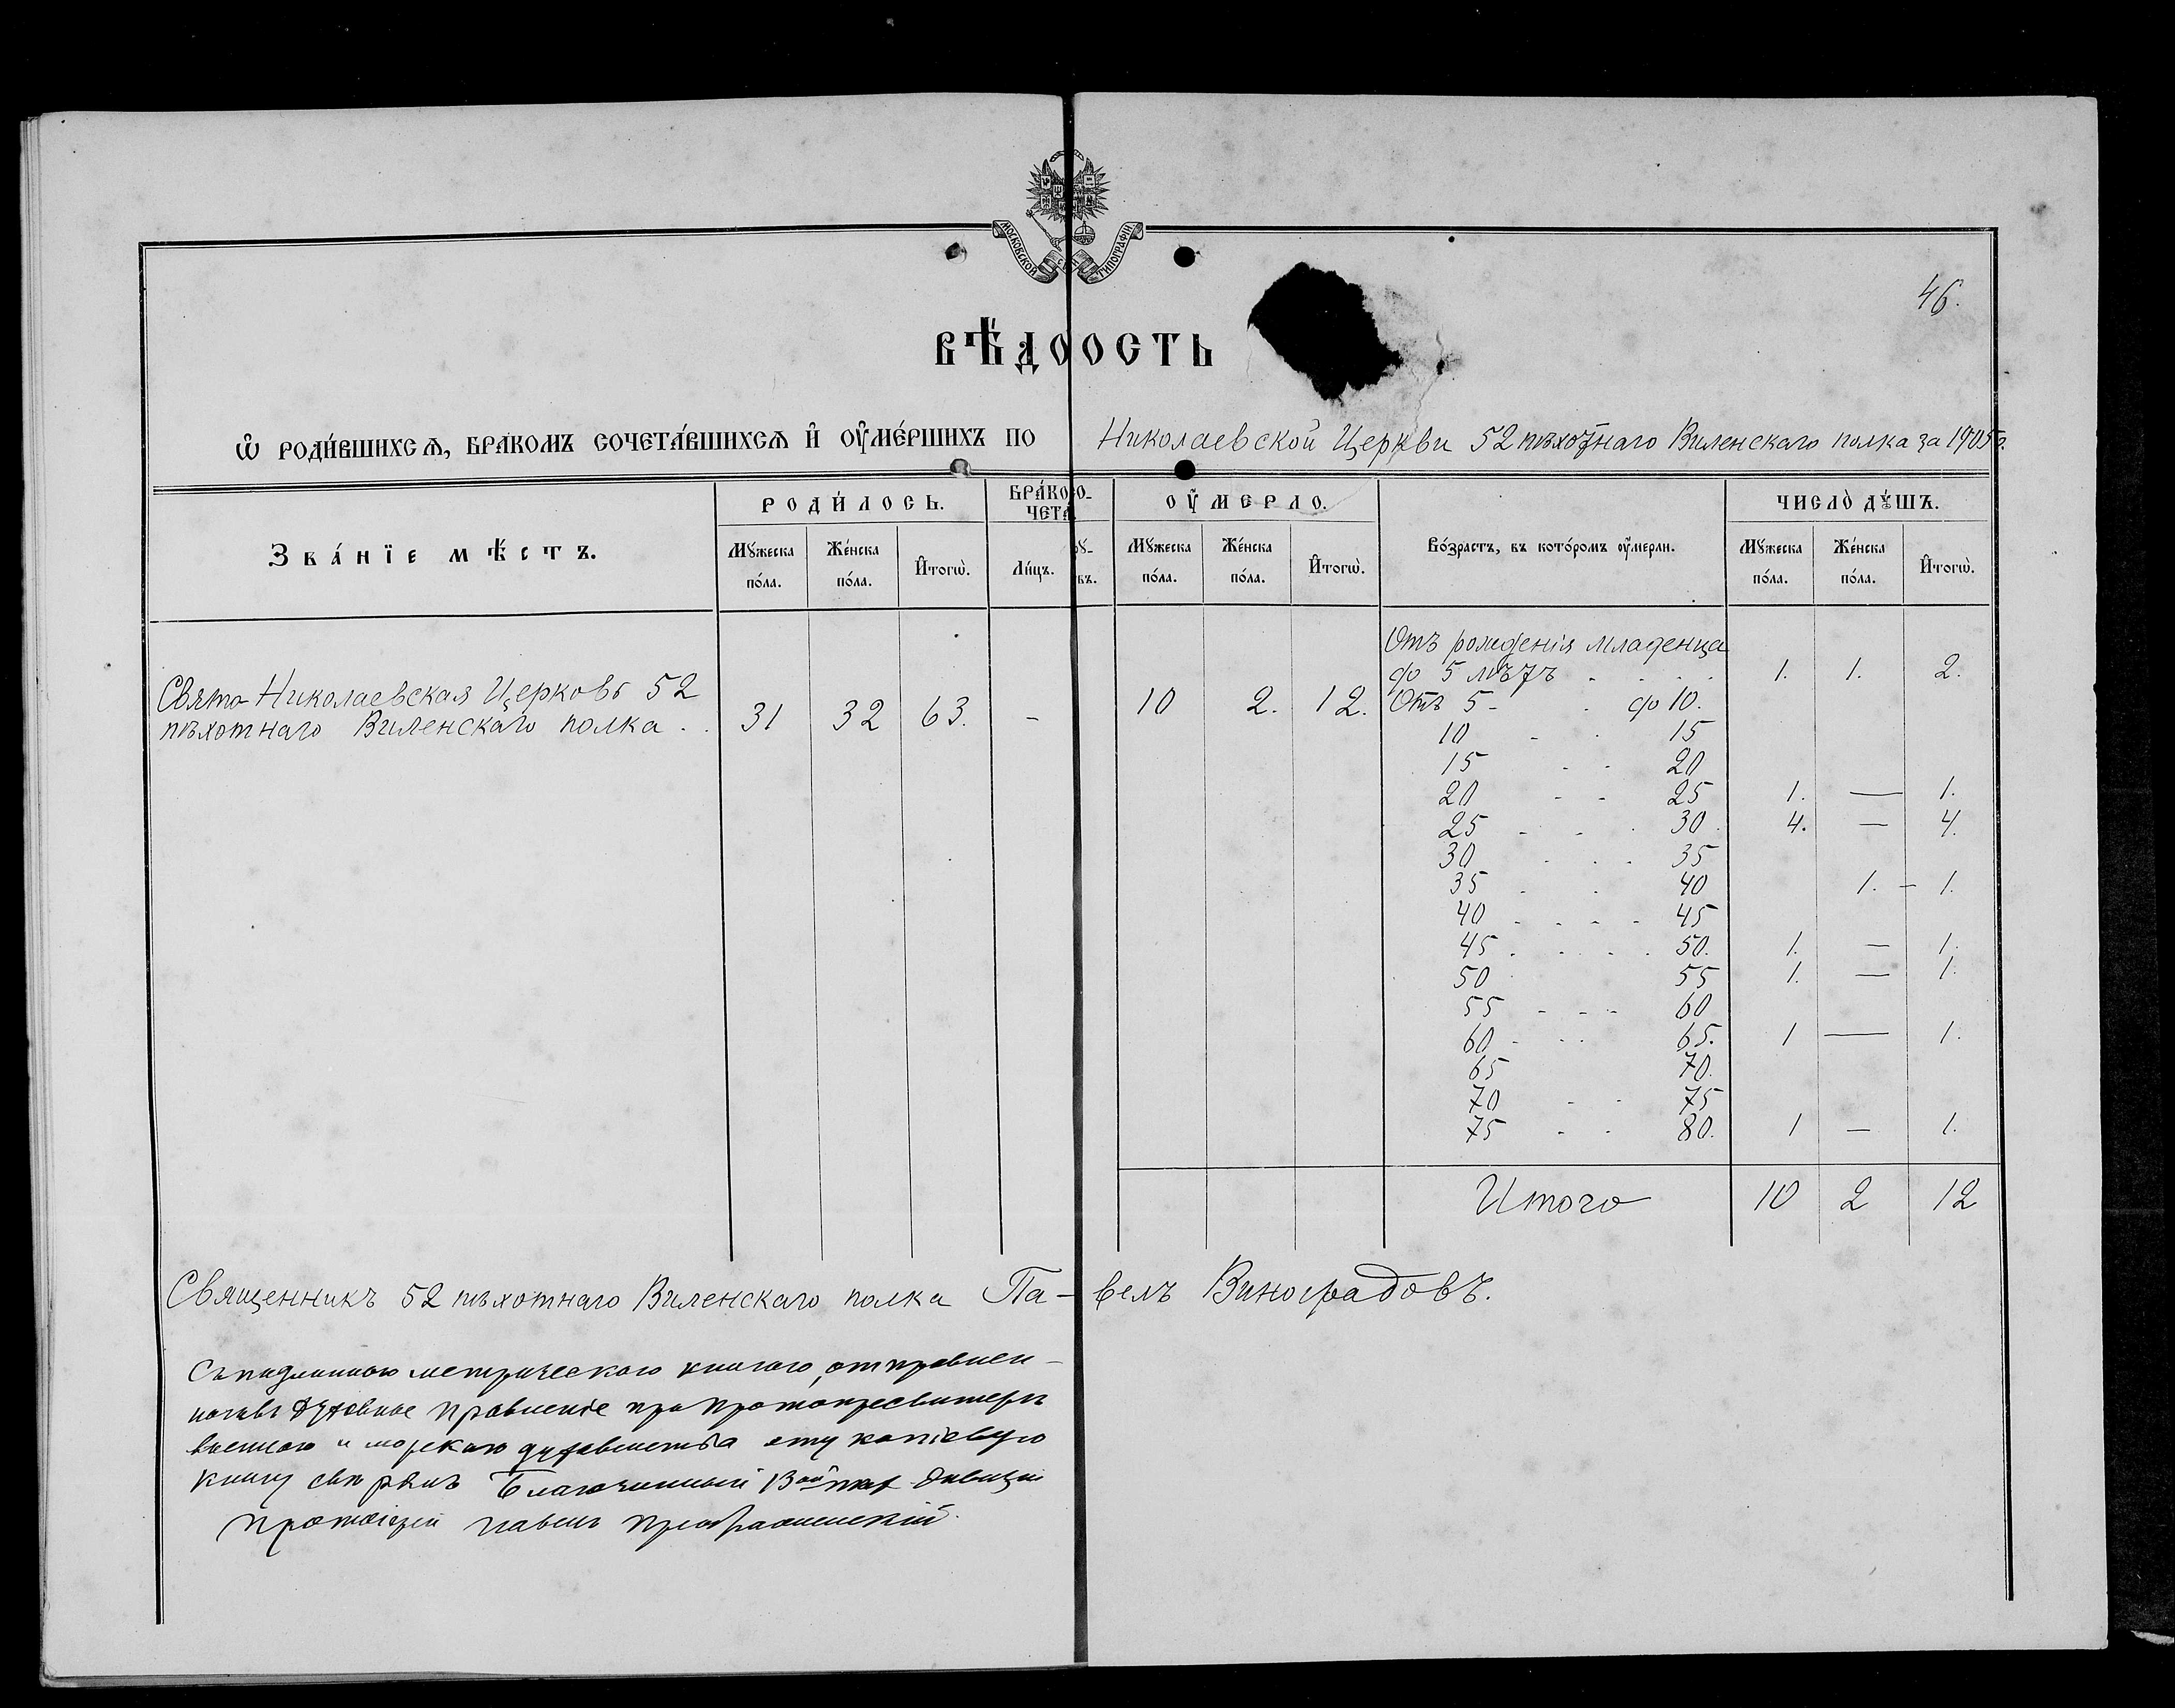 МОСКОВСКОЙ СѴН ТИПОГРАФІИ
46.
ВѢ́ДООСТЬ
Ѡ҆ РОДИ́ВШИХСѦ, БРА́КОМЪ СОЧЕТА́ВШИХСѦ И҆ ОУ҆МЕ́РШИХЪ ПО Николаевской Церкви 52 пѣхотнаго Виленскаго полка за 1905 г.
Зва́нїе мѣ́стъ.
РОДИ́ЛОСЬ.
БРА́КОСО-
ЧЕТА
ОУ҆МЕРЛО.
Во́зрастъ, въ кото́ромъ оу҆мерли.
ЧИСЛО̀ ДꙊ́ШЪ.
Мꙋжеска по́ла.
Же́нска по́ла.
И҆тогѡ̀.
Ли́цъ.
Мꙋжеска по́ла.
Же́нска по́ла.
И҆тогѡ̀.
Мꙋжеска по́ла.
Же́нска по́ла.
И҆тогѡ̀.
Свято-Николаевская Церковь 52
пѣхотнаго Виленскаго полка . . 31 32 63. - 10 2. 12.
Отъ рожденія младенца
до 5 лѣтъ . . . . 1. 1. 2.
Отъ 5 - . до 10.
10 - . 15
15 - . 20
20 - - 25 1. — 1.
25 - - . 30. 4. — 4.
30 . . . 35
35 . . 40 1. - 1.
40 . . . . 45
45 . . . . . 50. 1. — 1.
50 55 1. — 1.
55 - - - 60
60 - . . 65. 1 — 1.
65 70.
70 - . 75
75 - . 80. 1 — 1.
Итого 10 2 12
Священникъ 52 пѣхотнаго Виленскаго полка Па-велъ Виноградовъ.
Съ подлинною метрическою книгою, отправлен-
ною въ Духовное Правленіе при Протопресвитерѣ
военнаго и морскаго духовенства эту копіевую
книгу свѣрялъ Благочинный 13ой пѣх дивизіи
Протоіерей Павелъ Преображенскій.